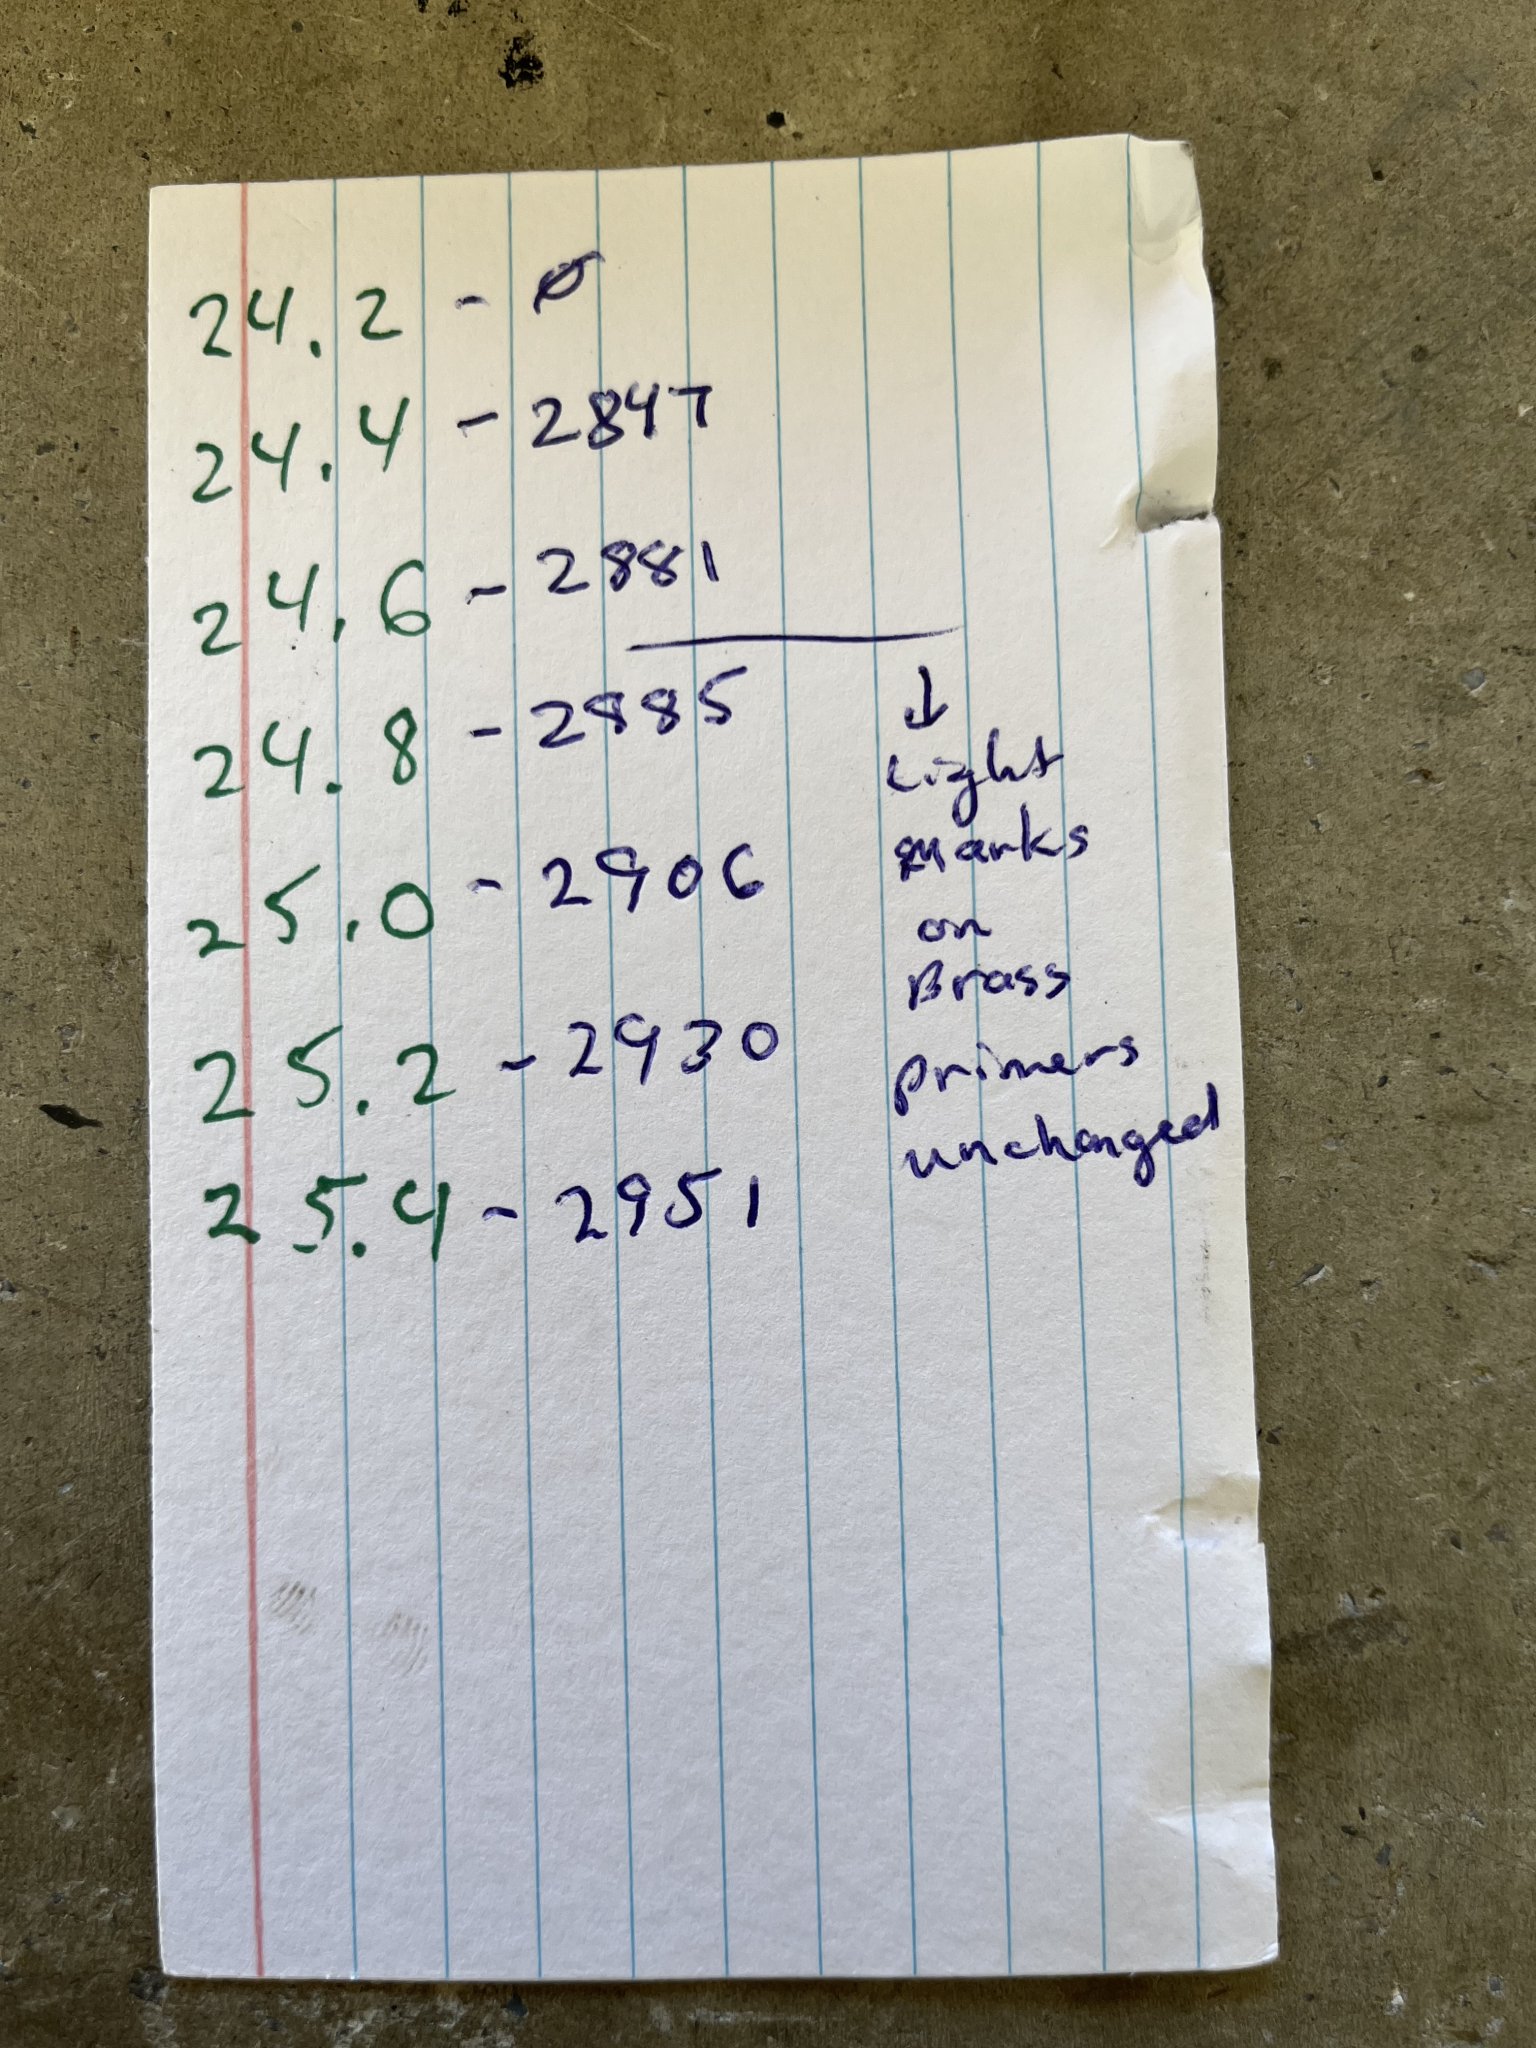 24.2 - Ø
24.4 - 2847
24.6 - 2881
24.8 - 2885
25.0 - 2906
25.2 - 2930
25.4 - 2951
↓
Light
marks
on
Brass
primers
unchanged